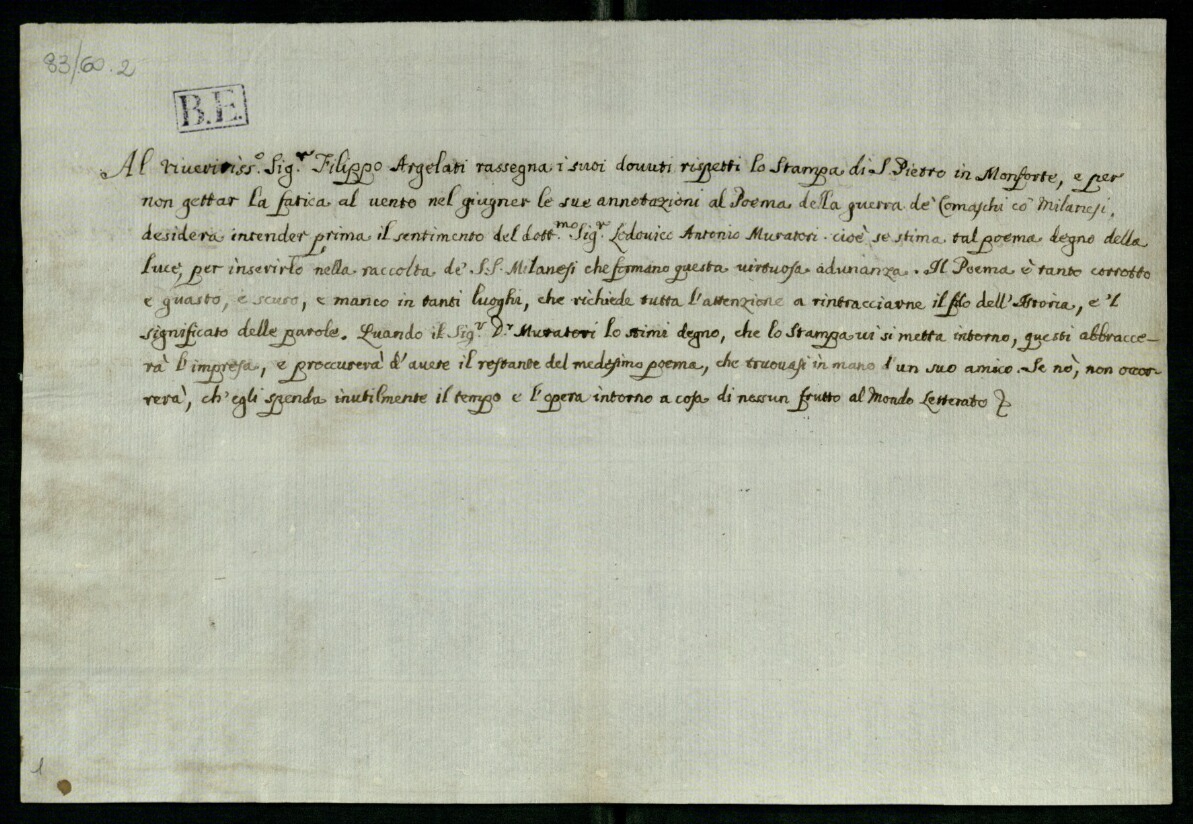 83/60.2
B.E.
Al riveritiss.o Sig.r Filippo Argelati rassegna i suoi dovuti rispetti lo Stampa di S. Pietro in Monforte, e per
non gettar la fatica al vento nel giugner le sue annotazioni al Poema della guerra de' Comaschi co' Milanesi,
desidera intender prima il sentimento del dott.mo Sig.r Lodovico Antonio Muratori. cioè se stima tal poema degno della
luce, per inserirlo nella raccolta de' S.S. Milanesi che formano questa virtuosa adunanza. Il Poema è tanto corrotto
e guasto, e scuro, e manco in tanti luoghi, che richiede tutta l'attenzione a rintracciarne il filo dell'Istoria, e 'l
significato delle parole. Quando il Sig.r D.r Muratori lo stimi degno, che lo Stampa vi si metta intorno, questi abbracce-
rà l'impresa, e proccurerà d'avere il restante del medesimo poema, che truovasi in mano d'un suo amico. Se nò, non occor-
rerà, ch'egli spenda inutilmente il tempo e l'opera intorno a cosa di nessun frutto al Mondo Letterato
1